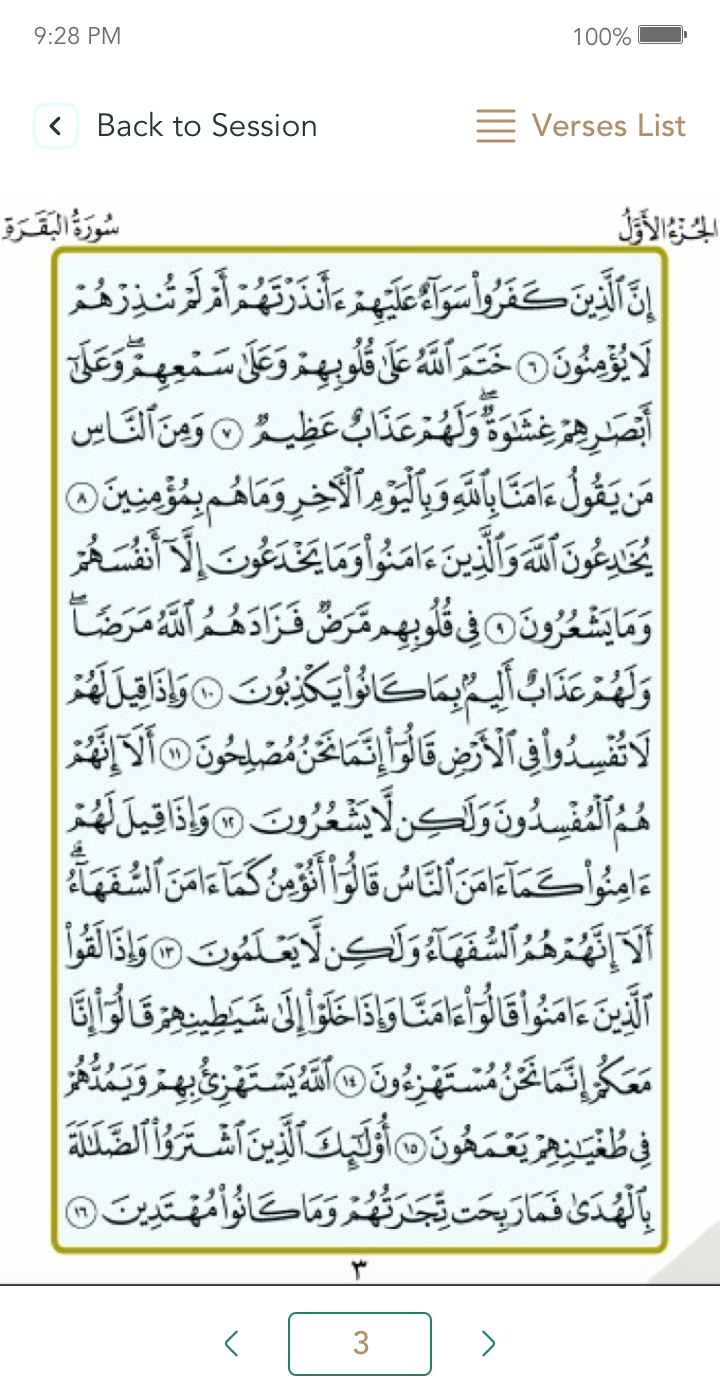 9:28 PM 100%
Back to Session Verses List
الجُزْءُ الأَوَّلُ سُورَةُ البَقَرَةِ
إِنَّ ٱلَّذِينَ كَفَرُوا۟ سَوَآءٌ عَلَيْهِمْ ءَأَنذَرْتَهُمْ أَمْ لَمْ تُنذِرْهُمْ
لَا يُؤْمِنُونَ ٦ خَتَمَ ٱللَّهُ عَلَىٰ قُلُوبِهِمْ وَعَلَىٰ سَمْعِهِمْ ۖ وَعَلَىٰٓ
أَبْصَـٰرِهِمْ غِشَـٰوَةٌ ۖ وَلَهُمْ عَذَابٌ عَظِيمٌ ٧ وَمِنَ ٱلنَّاسِ
مَن يَقُولُ ءَامَنَّا بِٱللَّهِ وَبِٱلْيَوْمِ ٱلْـَٔاخِرِ وَمَا هُم بِمُؤْمِنِينَ ٨
يُخَـٰدِعُونَ ٱللَّهَ وَٱلَّذِينَ ءَامَنُوا۟ وَمَا يَخْدَعُونَ إِلَّآ أَنفُسَهُمْ
وَمَا يَشْعُرُونَ ٩ فِى قُلُوبِهِم مَّرَضٌ فَزَادَهُمُ ٱللَّهُ مَرَضًا ۖ
وَلَهُمْ عَذَابٌ أَلِيمٌۢ بِمَا كَانُوا۟ يَكْذِبُونَ ١٠ وَإِذَا قِيلَ لَهُمْ
لَا تُفْسِدُوا۟ فِى ٱلْأَرْضِ قَالُوٓا۟ إِنَّمَا نَحْنُ مُصْلِحُونَ ١١ أَلَآ إِنَّهُمْ
هُمُ ٱلْمُفْسِدُونَ وَلَـٰكِن لَّا يَشْعُرُونَ ١٢ وَإِذَا قِيلَ لَهُمْ
ءَامِنُوا۟ كَمَآ ءَامَنَ ٱلنَّاسُ قَالُوٓا۟ أَنُؤْمِنُ كَمَآ ءَامَنَ ٱلسُّفَهَآءُ ۗ
أَلَآ إِنَّهُمْ هُمُ ٱلسُّفَهَآءُ وَلَـٰكِن لَّا يَعْلَمُونَ ١٣ وَإِذَا لَقُوا۟
ٱلَّذِينَ ءَامَنُوا۟ قَالُوٓا۟ ءَامَنَّا وَإِذَا خَلَوْا۟ إِلَىٰ شَيَـٰطِينِهِمْ قَالُوٓا۟ إِنَّا
مَعَكُمْ إِنَّمَا نَحْنُ مُسْتَهْزِءُونَ ١٤ ٱللَّهُ يَسْتَهْزِئُ بِهِمْ وَيَمُدُّهُمْ
فِى طُغْيَـٰنِهِمْ يَعْمَهُونَ ١٥ أُو۟لَـٰٓئِكَ ٱلَّذِينَ ٱشْتَرَوُا۟ ٱلضَّلَـٰلَةَ
بِٱلْهُدَىٰ فَمَا رَبِحَت تِّجَـٰرَتُهُمْ وَمَا كَانُوا۟ مُهْتَدِينَ ١٦
٣
3